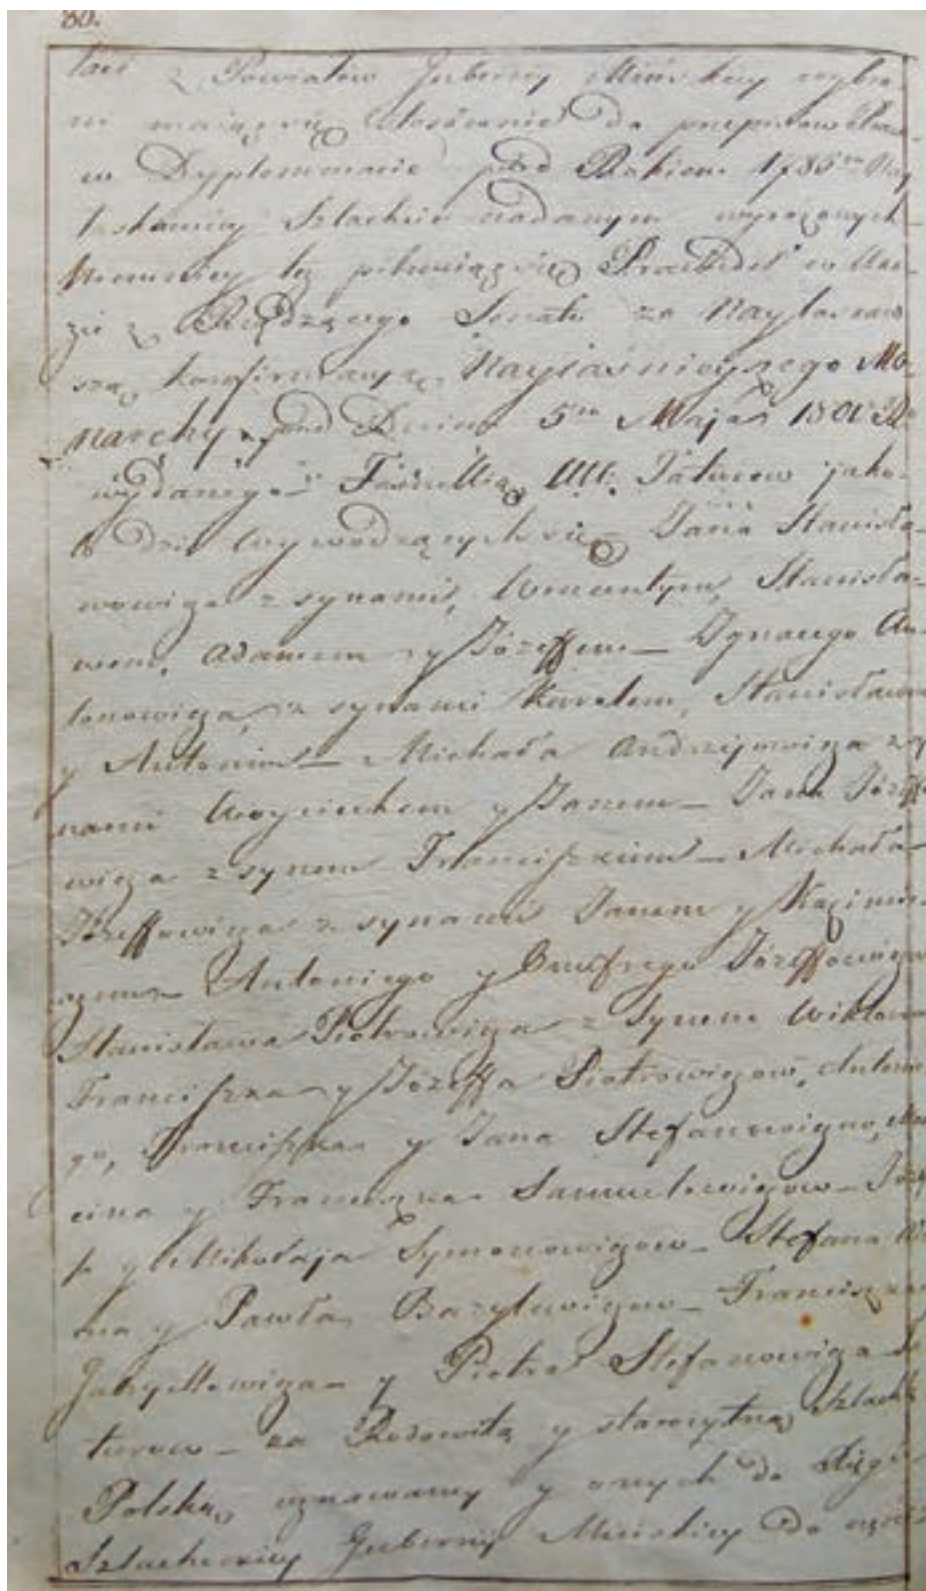 80.
z Powiatow Gubernij Minskiey wybra-
ni maiąc się stosownie do przepisow
w Dyplommacie pod Rokiem 1785m Nay
łaskawiey Szlachcie nadanym wyrażonych
niemniey też
z Rządzącego Senatu za Nayłaskaw
szą konfirmacyą Nayiaśnieyszego Mo-
narchy pod Dniem 5m Maja 1801
wydanego Familią UU. jako-
to dziś wywodzących się Jana Stanisła-
wowicza z synami, Wincentym, Stanisła-
wem, Adamem y Józeffem — Ignacego An-
tonowicza z synami Karolem, Stanisławem
y Antonim — Michała Andrzejowicza z sy
nami Woyciechem y Janem — Jana Józeffo
wicza z synem Franciszkiem — Michała
Józeffowicza z synami Janem y Kazimie-
rzem — Antoniego y Onufrego Józeffowiczow
Stanisława Piotrowicza z Synem Wiktorem
Franciszka y Józeffa Piotrowiczow, Antonie
go, Franciszka y Jana Stefanowiczow, Mar
cina y Franciszka Samuelowiczow — Józef
fa y Mikołaja Symonowiczow — Stefana
na y Pawła Bazylewiczow — Franciszka
Gabryellowicza — y Piotra Stefanowicza
turow — za Rodowitą y starożytną Szlachtę
Polską uznawamy y onych do Xięgi
Szlacheckiey Gubernij Minskiey do części